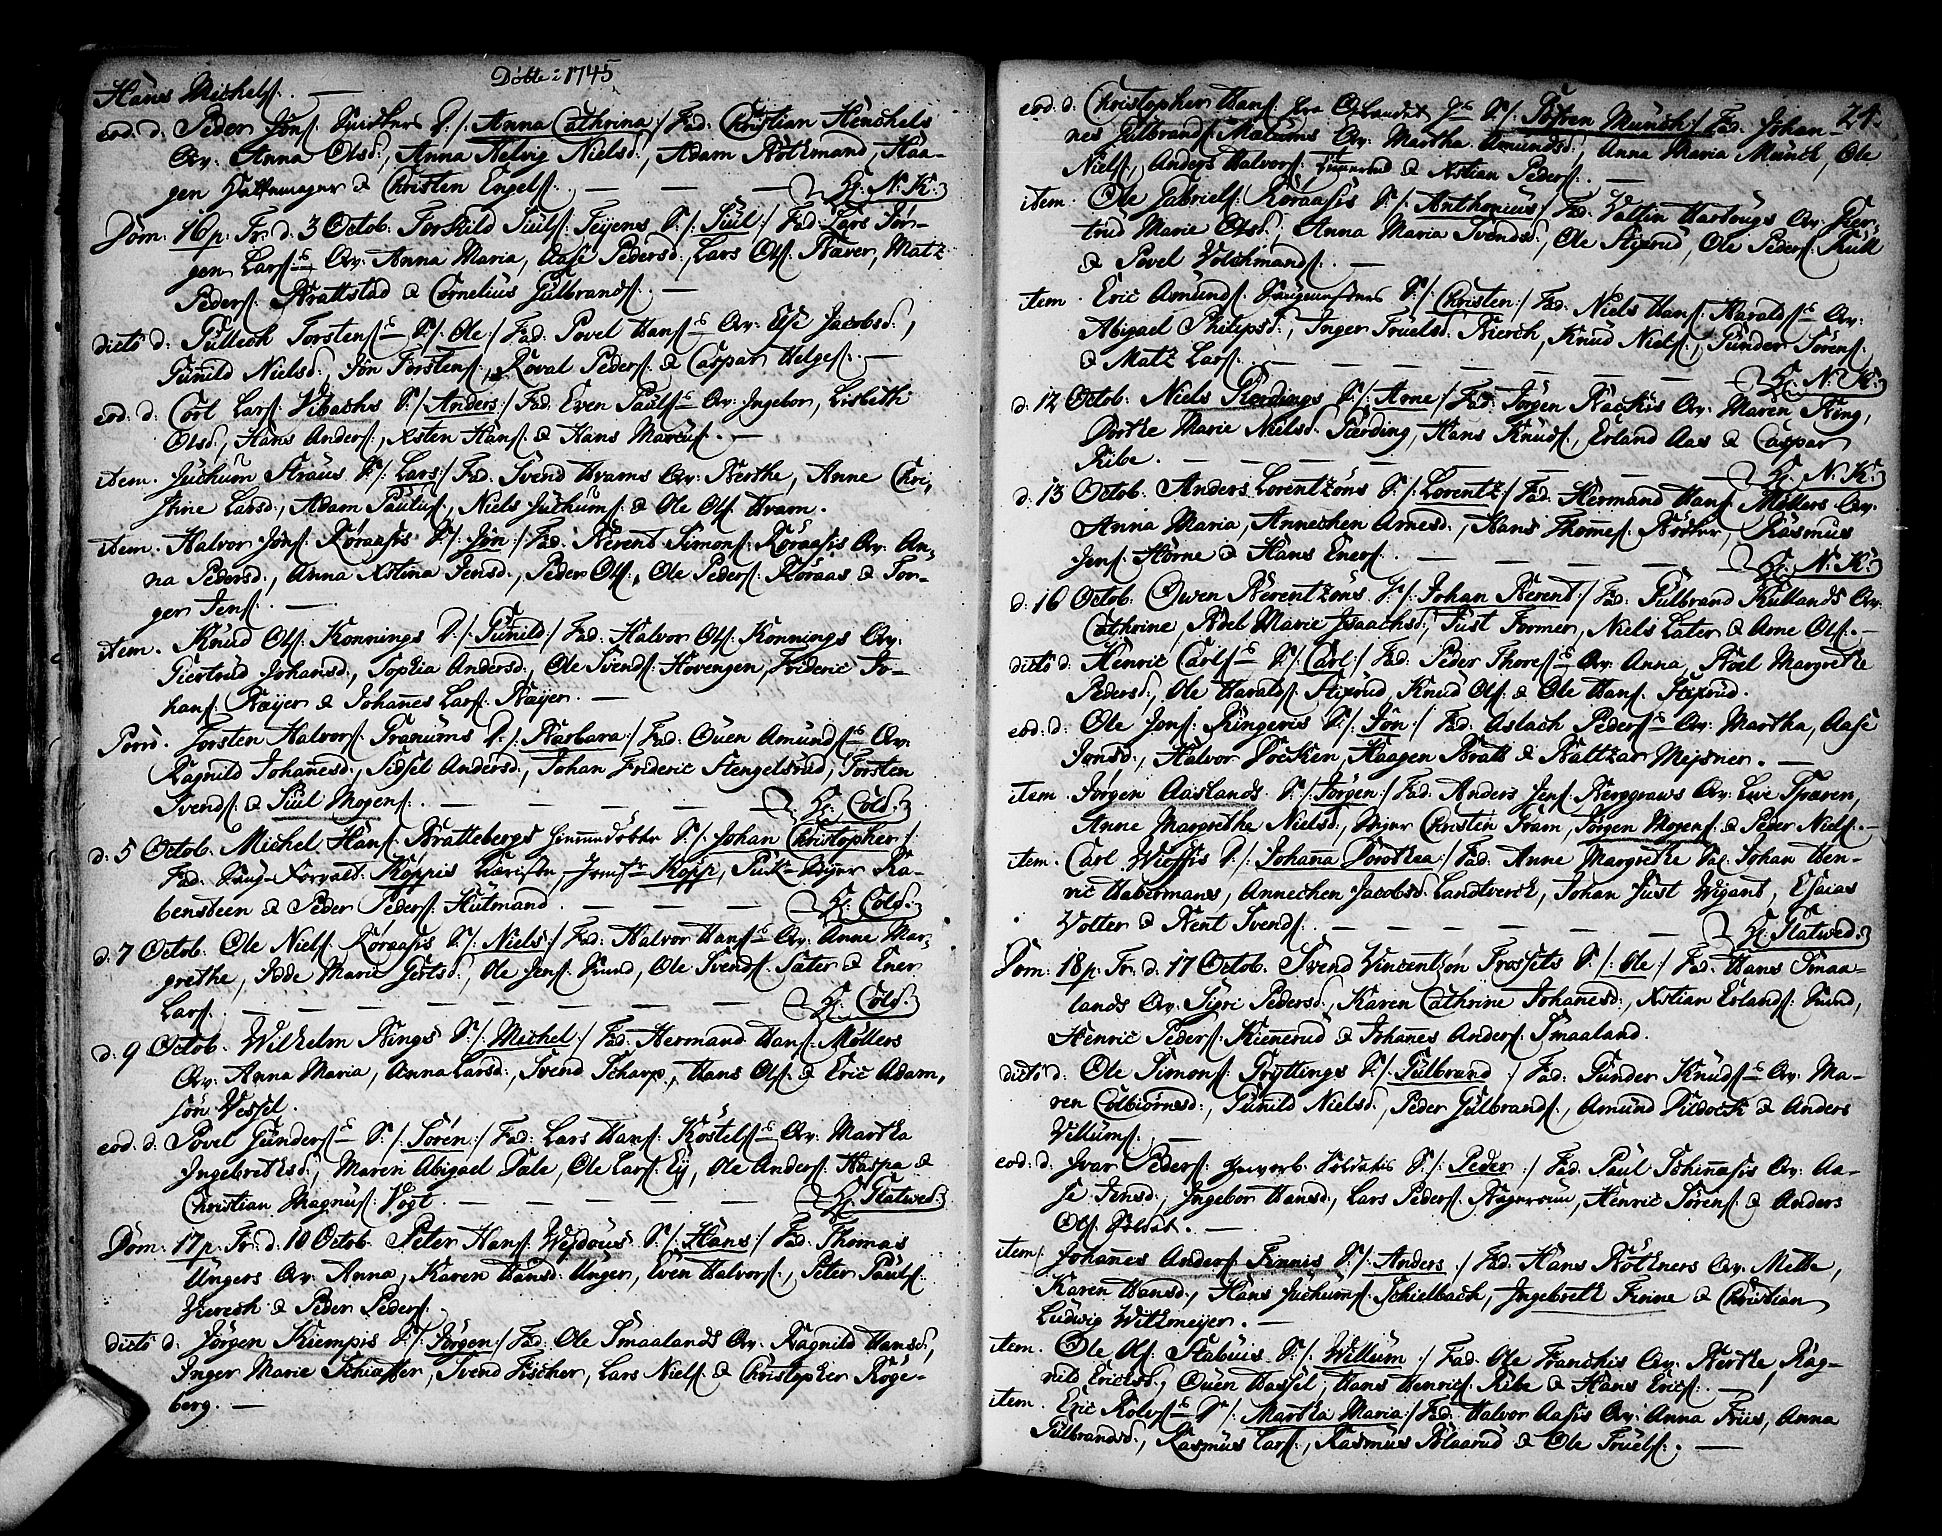 Döbte: 1745
Hans Michels:. —
eod: d: Peder Jøns: D:/: Anna Cathrina:/ Fad: Christian Henchels
Qv: Anna Olsd:, Anna Helvig Nielsd:, Adam Röthmand, Haa-
gen Hattemager & Christen Engels:. — — — H: N: K:
Dom: 16 p: Tr: d: 3 Octob: Torskild Juuls: Teijens S:/: Juul:/ Fad: Lars Jör-
gen Lars: Qv: Anna Maria, Aase Pedersd:, Lars Ols: Næver, Matz
Peders: Brattstad & Cornelius Gulbrands:. —
dicto d: Gullech Torstens: S:/: Ole:/ Fad: Povel Hans: Qv: Else Jacobsd:,
Gunild Nielsd:, Jon Torstens:, Roval Peders: & Caspar Helges:. —
eod: d: Carl Lars: Vibachs S:/: Anders:/ Fad: Even Pauls: Qv: Ingebor, Lisbeth
Olsd:, Hans Anders:, Asten Hans: & Hans Marcus:. —
item. Juchum Straus S:/: Lars:/ Fad: Svend Hvams Qv: Berthe, Anne Chri-
stine Larsd:, Adam Paulus:, Niels Juchums: & Ole Ols: Hvam.
item. Halvor Jøns: Kóraasis S:/: Jon:/ Fad: Berent Simons: Kóraasis Qv: An-
na Pedersd:, Anna Xstina Jensd:, Peder Ols:, Ole Peders: Kóraas & Tor-
ger Jens:. —
item. Knud Ols: Konnings D:/: Gunild:/ Fad: Halvor Ols: Konnings Qv:
Giertrud Johansd:, Sophia Andersd:, Ole Svends: Hovengen, Frideric Jo-
hans: Bæyer & Johannes Lars: Bæyer. —
Porro. Torsten Halvors: Tranums D:/: Barbara:/ Fad: Ouen Amunds: Qv:
Ragnild Johannesd:, Sidsel Andersd:, Johan Frideric Stengelsrud, Torsten
Svends: & Juul Mogens:. — — — — H: Cold:
d: 5 Octob: Michel Hans: Brattebergs hiemmedöbte S:/: Johan Christopher:/
Fad: Forvalt: Köppis Kiæriste, Jomfr Köpp, Ra-
bensteen & Peder Peders: Hutmand. — — — H: Cold:
d: 7 Octob: Ole Niels: Kóraasis S:/: Niels:/ Fad: Halvor Hans: Qv: Anne Mar-
grethe, Marie Götsd:, Ole Jens: Sund, Ole Svends: Sater & Ener
Lars:. — — — — H: Cold:
d: 9 Octob: Wilhelm Kings S:/: Michel:/ Fad: Hermand Hans: Möllers
Qv: Anna Maria, Anna Larsd:, Svend Scharp, Hans Ols: & Eric Adam-
són Vessel.
eod: d: Povel Gunders: S:/: Sören:/ Fad: Lars Hans: Köstels: Qv: Martha
Ingebrethsd:, Maren Abigael Dale, Ole Lars: Eij, Ole Anders: Haspa &
Christian Magnus: Vogt. — — — — H: Statwed:
Dom: 17 p: Tr: d: 10 Octob: Peter Hans: Wejdous S:/: Hans:/ Fad: Thomas
Ungers Qv: Anna, Karen Hansd: Unger, Even Halvors:, Peter Pauls:
Viereck & Peder Peders:
dicto d: Jörgen Kiempis S:/: Jörgen:/ Fad: Ole Smaalands Qv: Ragnild Hansd:,
Inger Marie Schiaffer, Svend Fischer, Lars Niels: & Christopher Röge-
berg. —
24.
eod: d: Christopher Hans: S:/: Fösten Munch:/ Fad: Johan-
nes Gulbrands: Malums Qv: Martha Amundsd:, Anna Maria Munch, Ole
Niels:, Anders Halvors: & Xstian Peders:. —
item. Ole Gabriels: Kóraasis S:/: Anthonius:/ Fad: Valtin Hartvigs Qv: Gier-
trud Marie Olsd:, Anna Maria Svendsd:, Ole Stixrud, Ole Peders: Kull
& Povel Volchmands:. —
item. Eric Amunds: S:/: Christen:/ Fad: Niels Hans: Haralds: Qv:
Abigael Philipsd:, Inger Truelsd: Kierch, Knud Niels:, Gunder Sörens:
& Matz Lars:. — — — — H: N: K:
d: 12 Octob: Niels Fierdings S:/: Arne:/ Fad: Jörgen Backis Qv: Maren King,
Dorthe Marie Nielsd: Fierding, Hans Knuds:, Erland Aas & Caspar
Ribe. — — — — H: N: K:
d: 13 Octob: Anders Lorentzöns S:/: Lorentz:/ Fad: Hermand Hans: Möllers Qv:
Anna Maria, Annechen Arnesd:, Hans Thomes: Bödker, Rasmus
Jens: Hörne & Hans Eners:. — — — — H: N: K:
d: 16 Octob: Owen Berentzöns S:/: Johan Berent:/ Fad: Gulbrand Kullands Qv:
Cathrine, Adel Marie Isaachsd:, Just Former, Niels Sater & Arne Ols:. —
dicto d: Henric Carls: S:/: Carl:/ Fad: Peder Thores: Qv: Anna, Boel Margrethe
Pedersd:, Ole Haralds: Stixrud, Knud Ols: & Ole Hans: Stixrud.
eod: d: Ole Jens: Ringeris S:/: Jon:/ Fad: Aslach Peders: Qv: Martha, Aase
Jonsd:, Halvor Docken, Haagen Bratt & Baltzar Mejsner. —
item. Jörgen Aaslands S:/: Jörgen:/ Fad: Anders Jens: Berggraws Qv: Live Tjæren,
Anne Margrethe Nielsd:, Christen Gram, Jörgen Mogens: & Peder Niels:. —
item. Carl Wiessis D:/: Johanna Dorothea:/ Fad: Anne Margrethe Sal: Johan Hen-
ric Habermans, Annechen Jacobsd: Landtverck, Johan Just Wigant, Esaias
Wolter & Bent Svends:. — — — — H: Statwed:
Dom: 18 p: Tr: d: 17 Octob: Svend Vincentzön Frossets S:/: Ole:/ Fad: Hans Smaa-
lands Qv: Sigri Pedersd:, Karen Cathrine Johannesd:, Xstian Erlands: Sund,
Henric Peders: Kiennerud & Johannes Anders: Smaaland.
dicto d: Ole Simons: Tryttings S:/: Gulbrand:/ Fad: Gunder Knuds: Qv: Ma-
ren Colbiörnsd:, Gunild Nielsd:, Peder Gulbrands:, Amund Vildock & Anders
Villums:. —
eod: d: Ivar Peders: Soldatis S:/: Peder:/ Fad: Paul Schinnasis Qv: Aa-
se Jensd:, Ingebor Hansd:, Lars Peders:, Henric Sörens: & Anders
Ols: Soldat. —
item. Johannes Anders: Finnis S:/: Anders:/ Fad: Hans Röthners Qv: Mette,
Karen Hansd:, Hans Juchums: Schielbach, Ingebreth Finne & Christian
Ludwig Witzmeyer. —
item. Ole Ols: Stabuis S:/: Willum:/ Fad: Ole Franchis Qv: Berthe, Rag-
nild Ericksd:, Ouen Hassel, Hans Henrics: Ribe & Hans Erics:. —
item. Eric Rolefs: D:/: Martha Maria:/ Fad: Halvor Aasis Qv: Anna Friis, Anna
Gulbrandsd:, Rasmus Lars:, Rasmus Blaarud & Ole Truels:. —